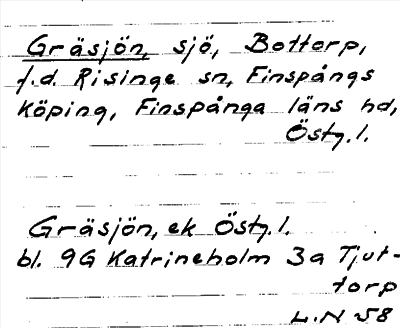 Gräsjön, sjö, Bottorp,
f.d. Risinge sn, Finspångs
köping, Finspånga läns hd,
Östg.l.
Gräsjön, ek Östg.l.
bl. 9G Katrineholm 3a Tjut-
torp
L.N 58